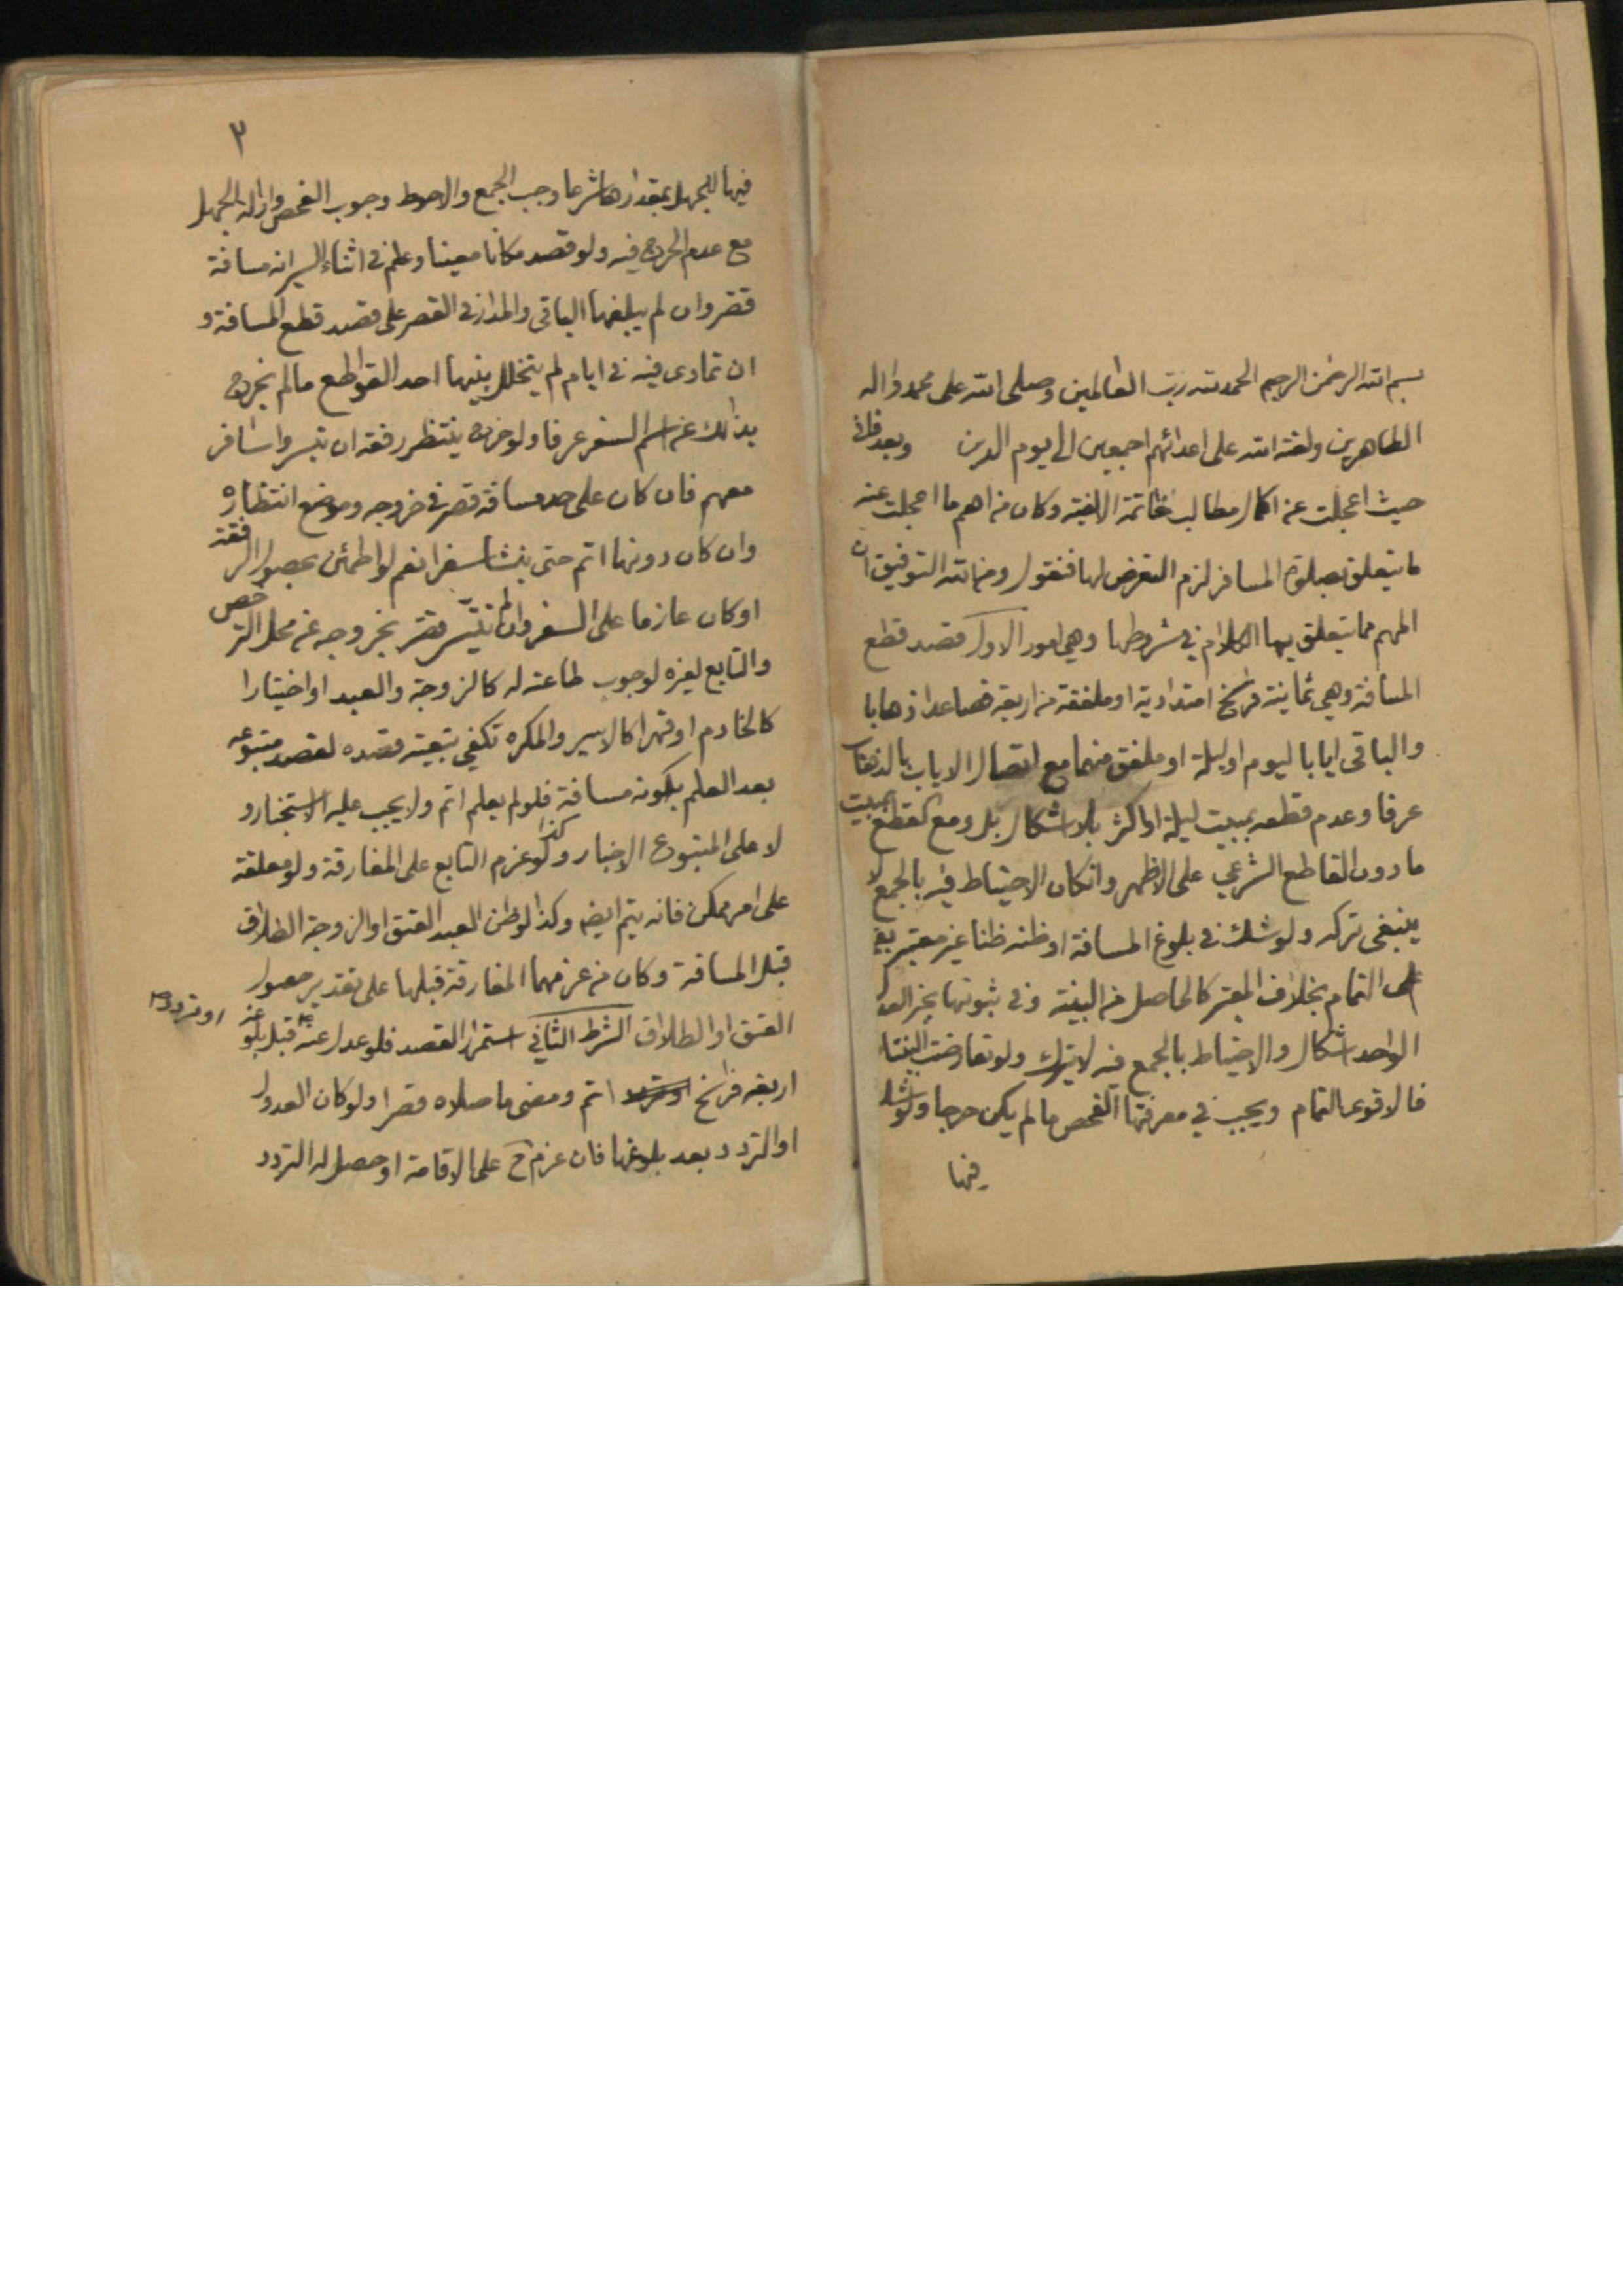 بسم الله الرحمن الرحيم الحمد لله رب العالمين وصلى الله على محمد واله
الطاهرين ولعنة الله على اعدائهم اجمعين الى يوم الدين وبعد فانى
حيث اعجلت عن اكمال مطالب خاتمة الالفية وكان من اهم ما اعجلت عنه
ما يتعلق بصلوة المسافر لزم التعرض لها فنقول ومن الله التوفيق ان
المهم مما يتعلق بها الكلام في شروطها وهي امور الاول قصد قطع
المسافة وهي ثمانية فراسخ امتدادية او ملفقة من اربعة فصاعدا ذهابا
والباقى ايابا ليوم او ليلة او ملفق منهما مع اتصال الاياب بالذهاب
عرفا وعدم قطعه بمبيت ليلة او اكثر بلا اشكال بل ومع القطع بمبيت
ما دون القاطع الشرعي على الاظهر وان كان الاحتياط فيه بالجمع لا
ينبغى تركه ولو شك في بلوغ المسافة او ظنه ظنا غير معتبر بقى
على التمام بخلاف المعتبر كالحاصل من البينة وفي ثبوتها بخبر العدل
الواحد اشكال والاحتياط بالجمع فيه لا يترك ولو تعارضت البينتا
فالاقوى التمام ويجب في معرفتها الفحص ما لم يكن حرجا ولو شك
فيها
٣
فيها للجهل بمقدارها شرعا وجب الجمع والاحوط وجوب الفحص وازالة الجهل
مع عدم الحرج فيه ولو قصد مكانا معينا وعلم في اثناء السير انه مسافة
قصر وان لم يبلغها الباقى والمدار في القصر على قصد قطع المسافة و
ان تمادى فيه في ايام لم يتخلل بينها احد القواطع ما لم يخرج
بذلك عن اسم السفر عرفا ولو خرج ينتظر رفقة ان تيسروا سافر
معهم فان كان على حد مسافة قصر في خروجه وموضع انتظاره
وان كان دونها اتم حتى ينشأ سفرا نعم لو اطمئن بحصول الرفقة
او كان عازما على السفر وان لم تتيسر قصر بخروجه عن محل الترخص
والتابع لغيره لوجوب طاعته له كالزوجة والعبد او اختيارا
كالخادم او قهرا كالاسير والمكره تكفي تبعية قصده لقصد متبوعه
بعد العلم بكونه مسافة فلو لم يعلم اتم ولا يجب عليه الاستخبار و
لا على المتبوع الاخبار وكذا لو عزم التابع على المفارقة ولو معلقة
على امر ممكن فانه يتم ايضا وكذا لو ظن العبد العتق او الزوجة الطلاق
قبل المسافة وكان من عزمهما المفارقة قبلها على تقدير حصول
العتق او الطلاق الشرط الثاني استمرار القصد فلو عدل عنه قبل بلوغه
او تردد
اربعة فراسخ اتم ومضى ما صلاه قصرا ولو كان العدول
او التردد بعد بلوغها فان عزم ح على الاقامة او حصل له التردد